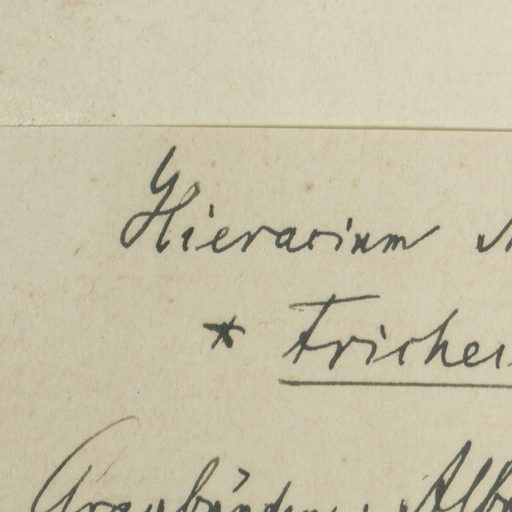 Hieracium
* Trichei
Graubünden: Alb